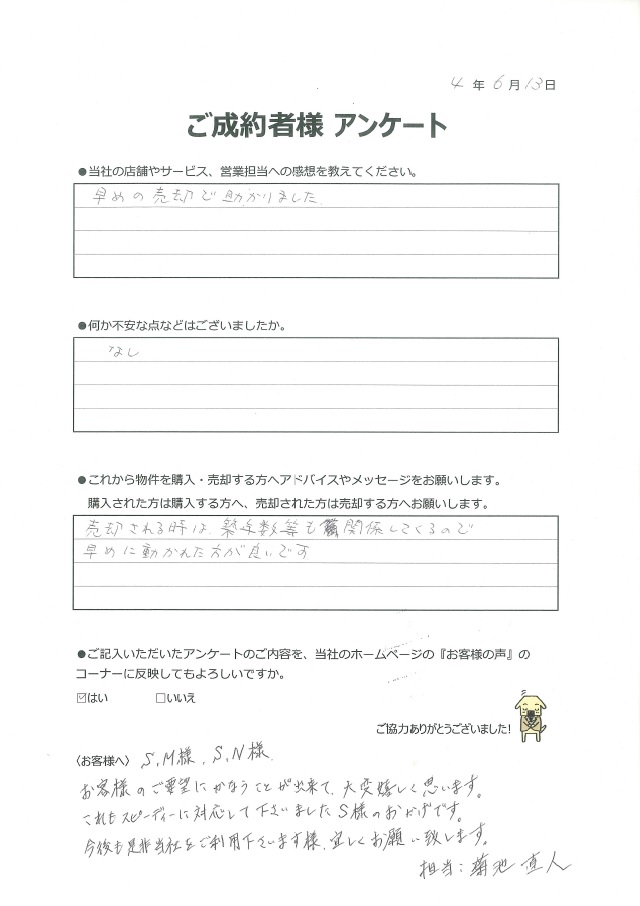 4 年 6 月 13 日
ご成約者様 アンケート
●当社の店舗やサービス、営業担当への感想を教えてください。
早めの売却で助かりました
●何か不安な点などはございましたか。
なし
●これから物件を購入・売却する方へアドバイスやメッセージをお願いします。
購入された方は購入する方へ、売却された方は売却する方へお願いします。
売却される時は、築年数等も関係してくるので
早めに動かれた方が良いです
●ご記入いただいたアンケートのご内容を、当社のホームページの『お客様の声』の
コーナーに反映してもよろしいですか。
☑はい □いいえ
ご協力ありがとうございました!
〈お客様へ〉 S,M様、S,N様
お客様のご要望にかなうことが出来て、大変嬉しく思います。
これもスピーディーに対応して下さいましたS様のおかげです。
今後も是非当社をご利用下さいます様、宜しくお願い致します。
担当：菊池 直人